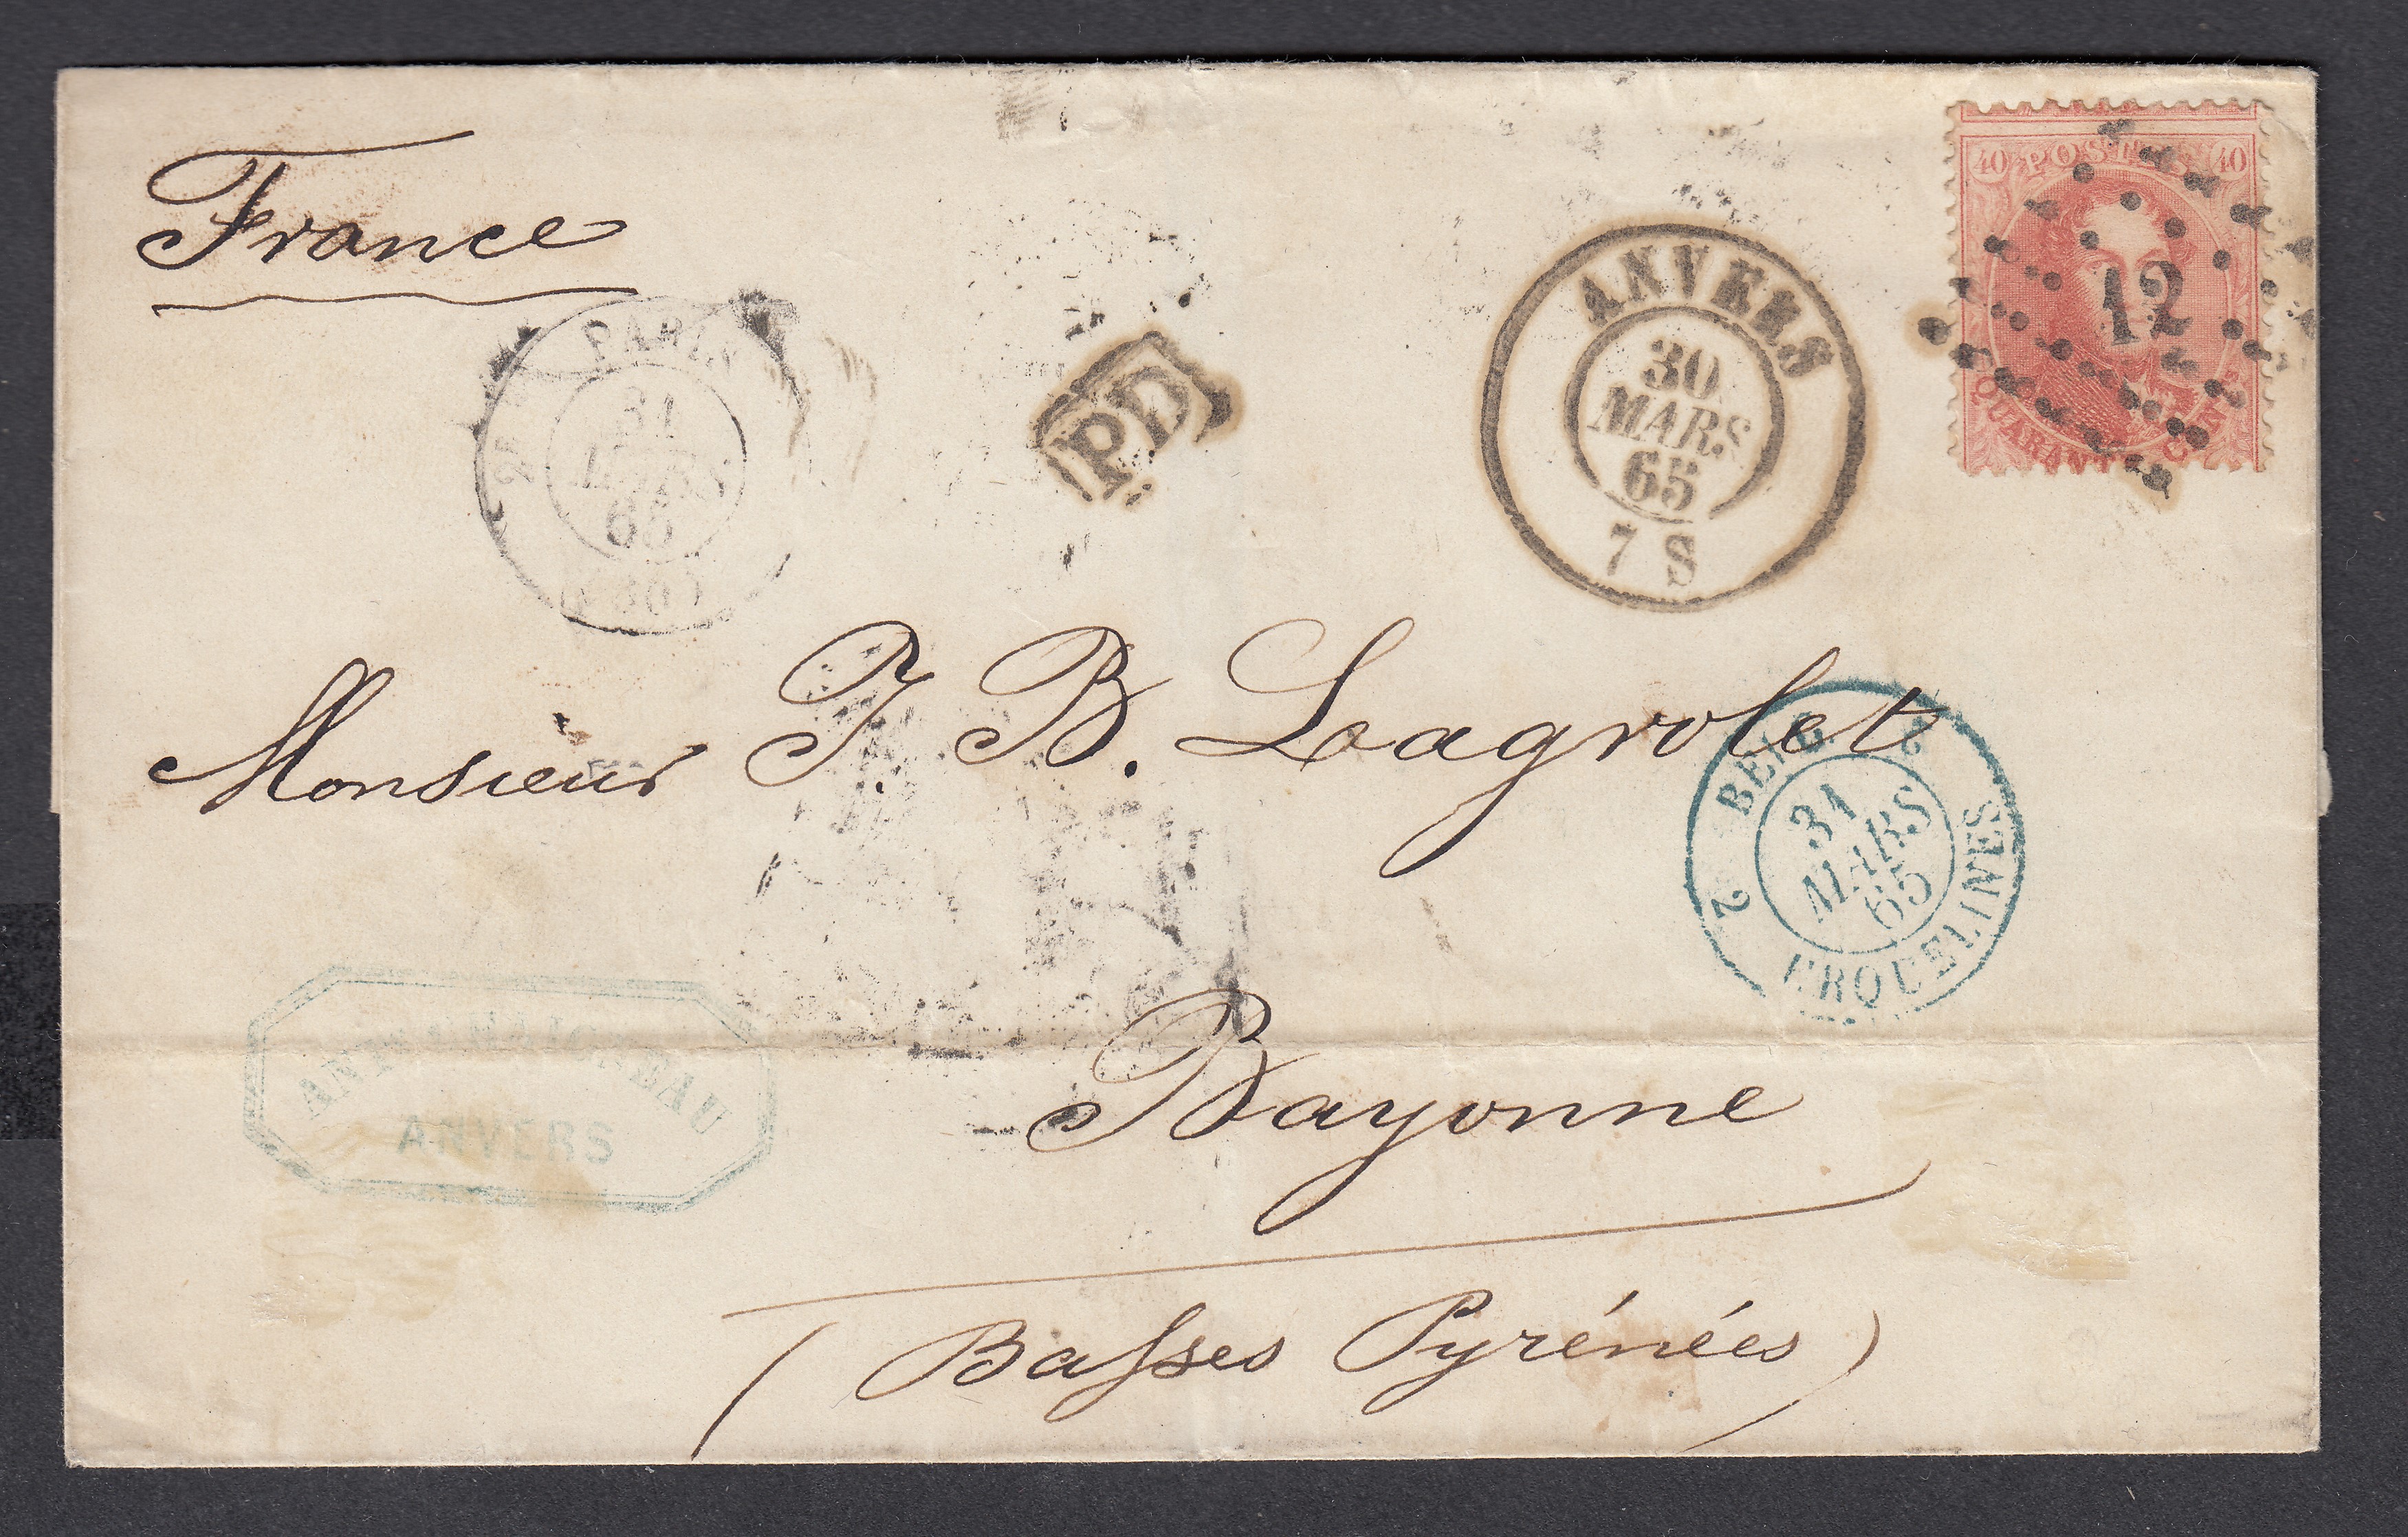 France
40 POSTES 40
12
QUARANTE CENTS
ANVERS
30
MARS
65
7 S
PD
PARIS
31
MARS
65
(60)
Monsieur J. B. Lagrolet
BELG. 2
31
MARS
65
2 ERQUELINES
ANVERS
Bayonne
(Basses Pyrénées)